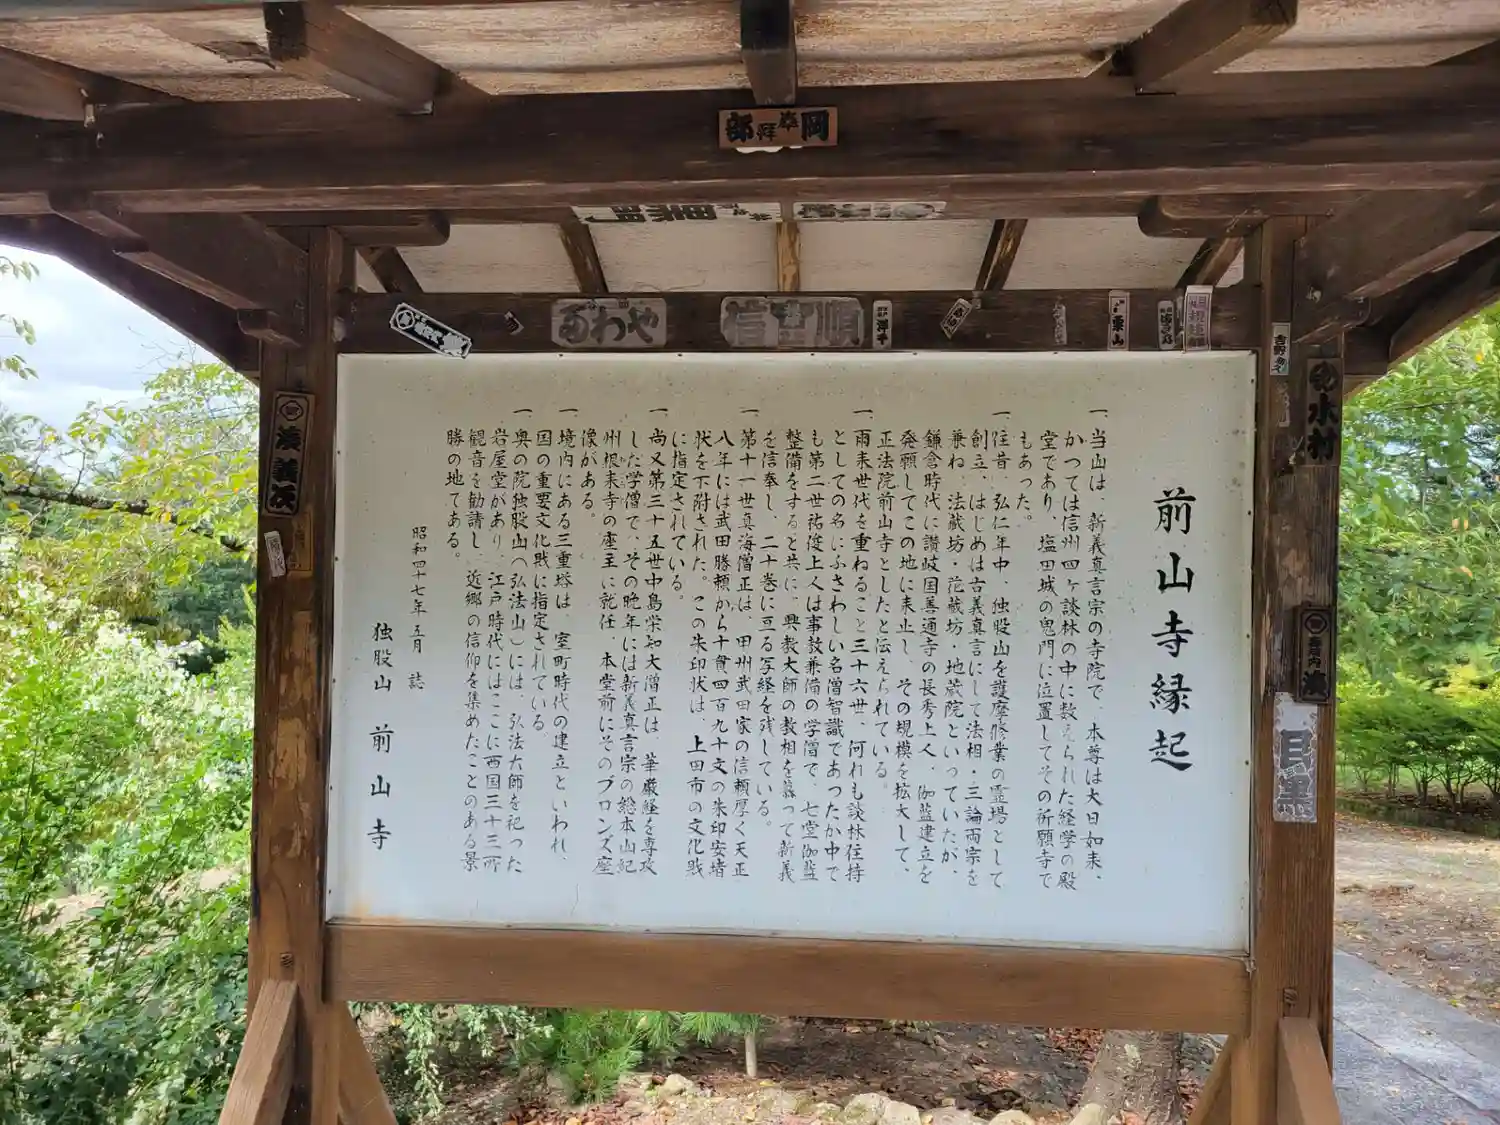 前山寺縁起
一、当山は、新義真言宗の寺院で、本尊は大日如来、
かつては信州四ヶ談林の中に数えられた経学の殿
堂であり、塩田城の鬼門に位置してその祈願寺で
もあった。
一、往昔、弘仁年中、独股山を護摩修業の霊場として
創立、はじめは古義真言にして法相・三論両宗を
兼ね、法蔵坊・花蔵坊・地蔵院といっていたが、
鎌倉時代に讃岐国善通寺の長秀上人、伽藍建立を
発願してこの地に来止し、その規模を拡大して、
正法院前山寺としたと伝えられている。
一、雨来世代を重ねること三十六世、何れも談林住持
としての名にふさわしい名僧智識であったか中で
も第二世祐俊上人は事教兼備の学僧で、七堂伽藍
整備をすると共に、興教大師の教相を慕って新義
を信奉し、二十巻に亘る写経を残している。
一、第十一世真海僧正は、甲州武田家の信頼厚く天正
八年には武田勝頼から十貫四百九十文の朱印安堵
状を下附された。この朱印状は、上田市の文化戝
に指定されている。
一、尚又第三十五世中島栄知大僧正は、華厳経を専攻
した学僧で、その晩年には新義真言宗の総本山紀
州根来寺の座主に就任、本堂前にそのブロンズ座
像がある。
一、境内にある三重塔は、室町時代の建立といわれ、
国の重要文化戝に指定されている
一、奥の院独股山(弘法山)には、弘法大師を祀った
岩屋堂があり、江戸時代にはここに西国三十三所
観音を勧請し、近郷の信仰を集めたことのある景
勝の地である。
昭和四十七年五月 誌
独股山 前山寺
岡奉拝部
順宮信
やわる
水村
湊義次
目黒